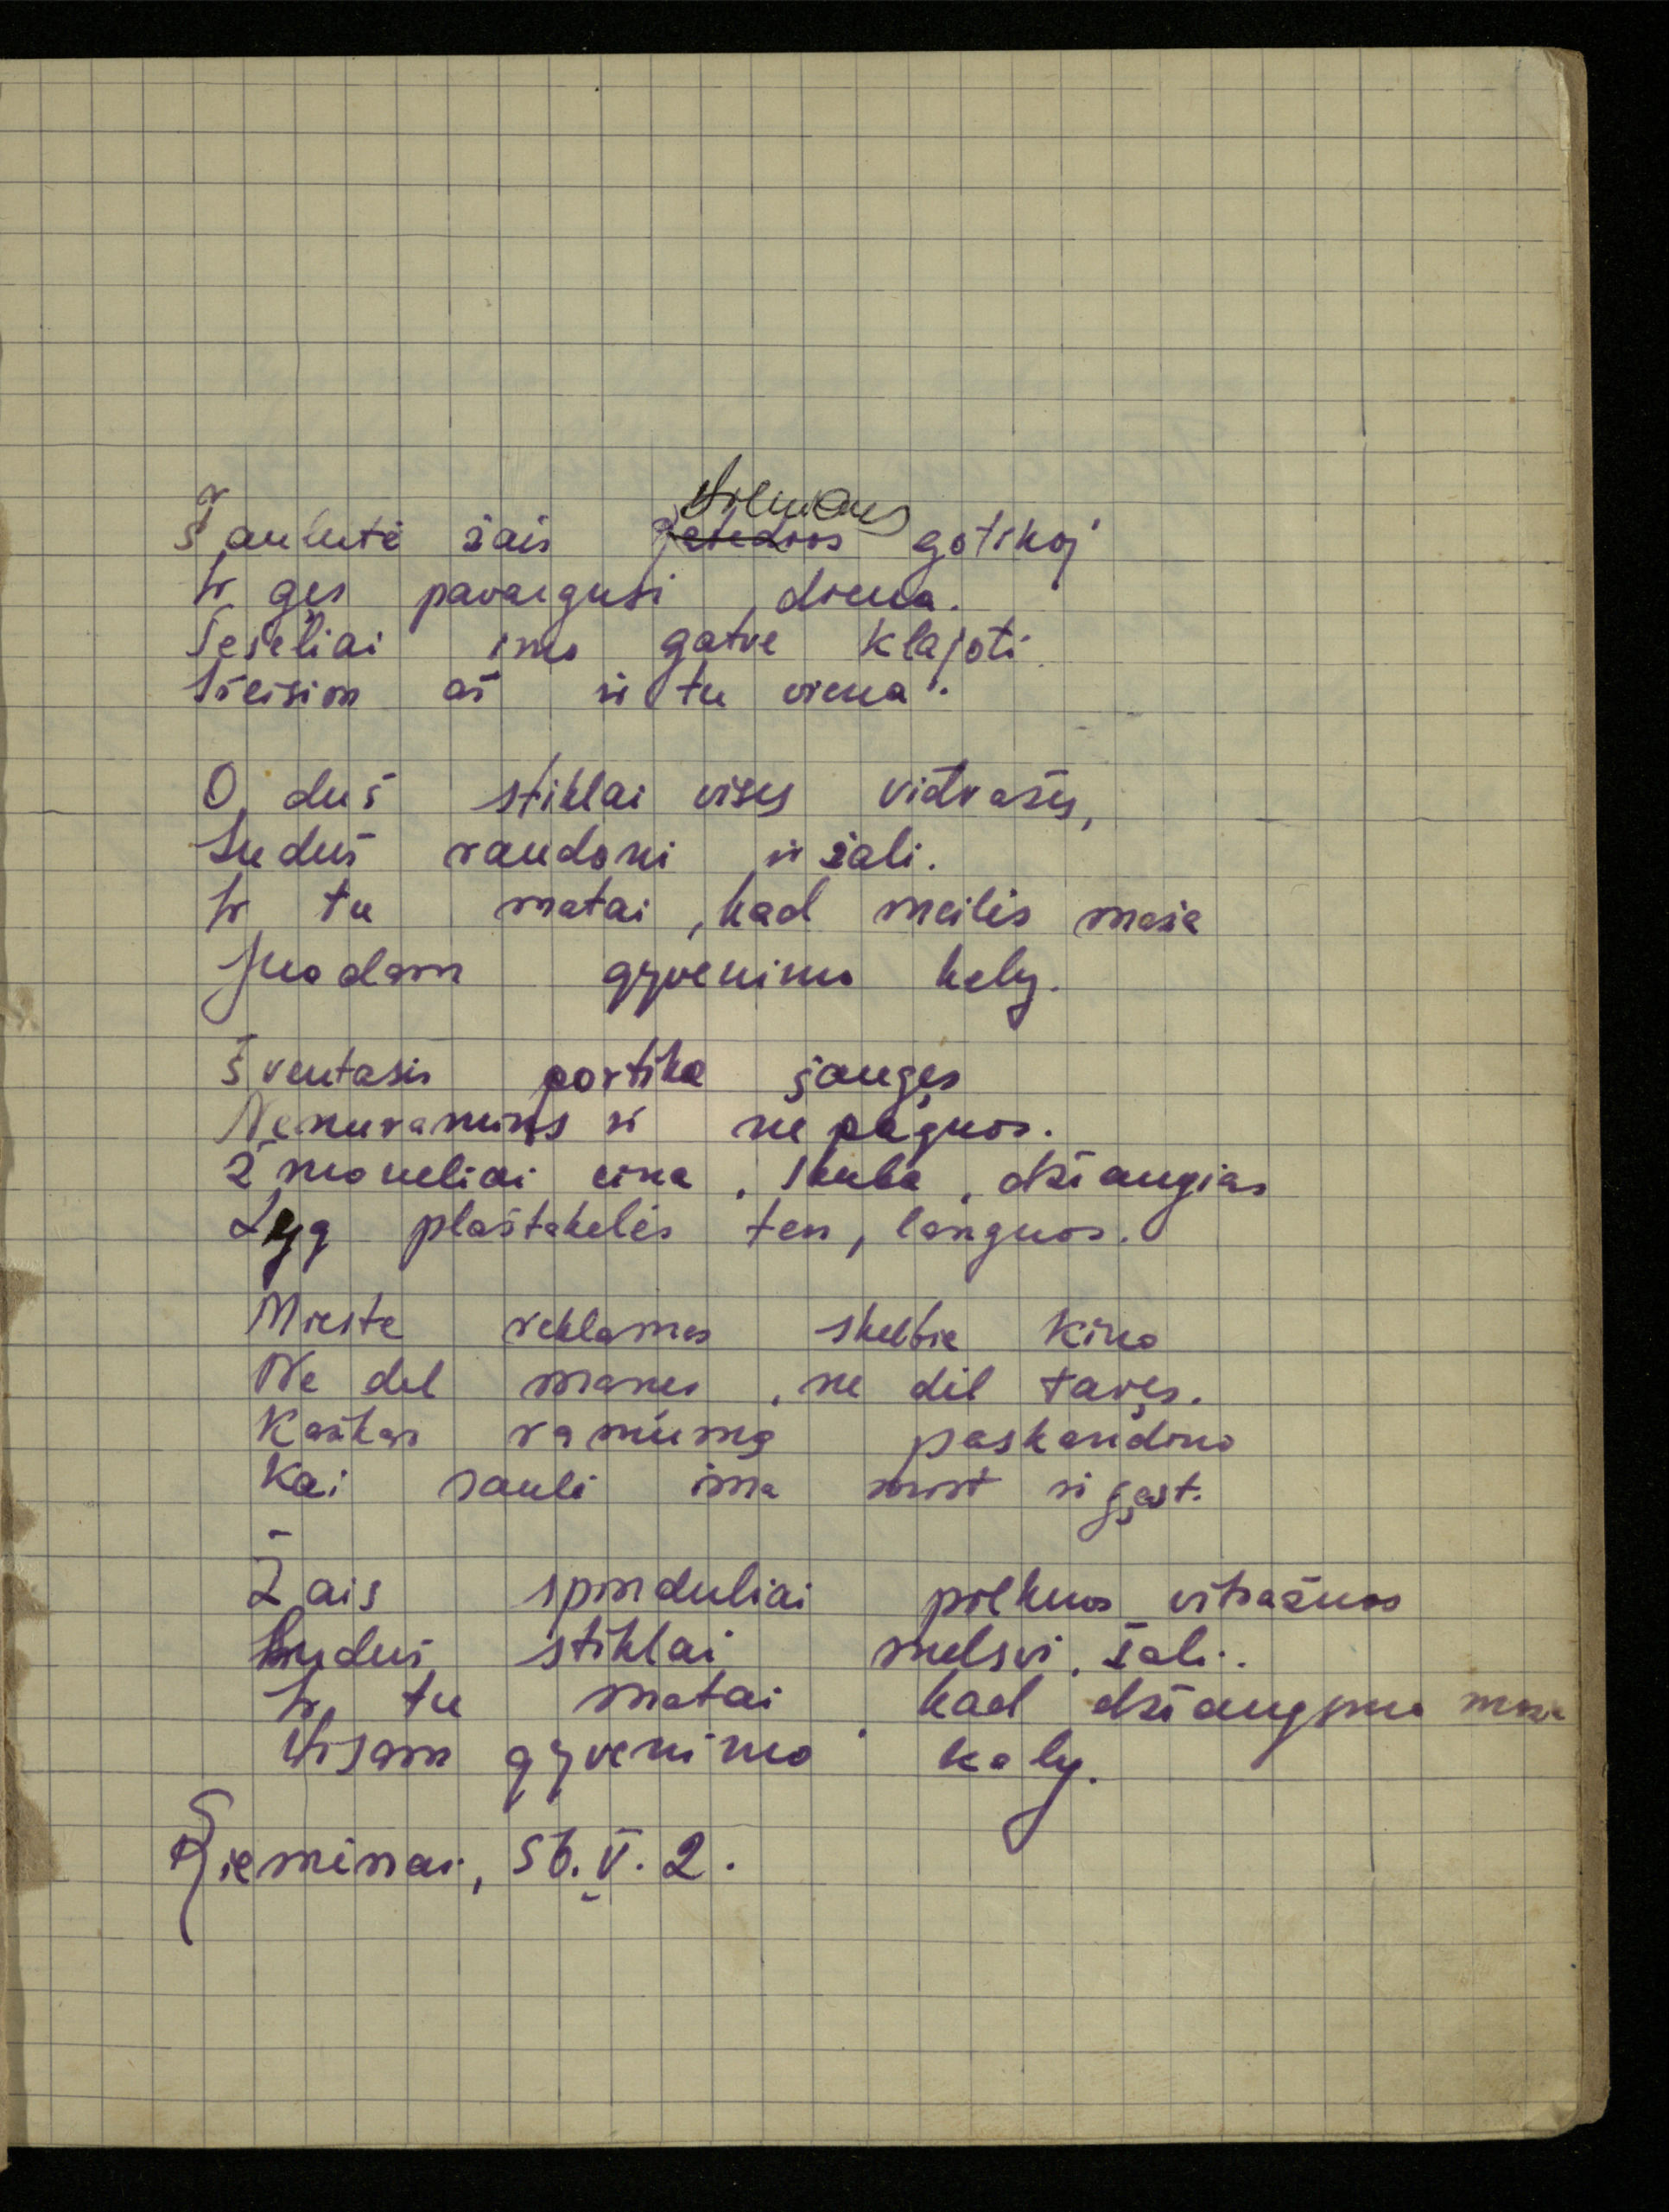 Saulutė žais Vilniaus gotikoj
Ir ges pavargusi diena.
Šešėliai ims gatve klajoti
Išeisim aš ir tu viena.
O duš stiklai visų vitražų,
Suduš raudoni ir žali.
Ir tu matai, kad meilės maža
Juodam gyvenimo kely.
Šventasis portike įžengęs
Nenuramins ir ne paguos.
Žmoneliai eina, skuba, džiaugias
Lyg plaštakelės ten, languos.
Mieste reklamos skelbia kino
Ne dėl manęs, ne dėl tavęs.
Kažkas ramumą paskandino
Kai saulė ima mirt ir gęst.
Žais spinduliai pilkuos vitražuos
Suduš stiklai melsvi, žali.
Ir tu matai kad džiaugsmo maža
Visam gyvenimo kely.
Žieminai, 56.V.2.